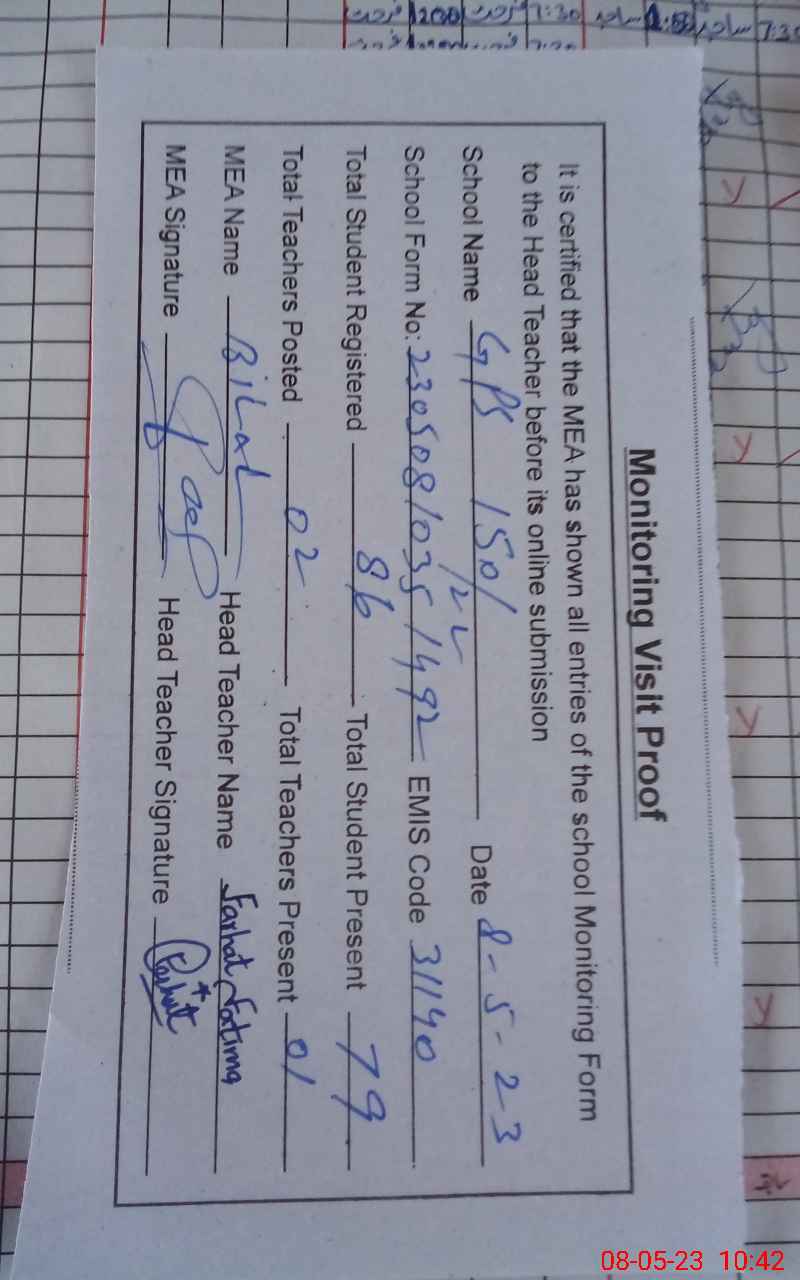 Monitoring Visit Proof
It is certified that the MEA has shown all entries of the school Monitoring Form
to the Head Teacher before its online submission
School Name GPS 150/ Date 8-5-23
/2L
School Form No: 230508/035/492 EMIS Code 31140
Total Student Registered 86 Total Student Present 79
Total Teachers Posted 02 Total Teachers Present 01
MEA Name Bilal Head Teacher Name Farhat Fatima
MEA Signature Head Teacher Signature Farhat
08-05-23 10:42